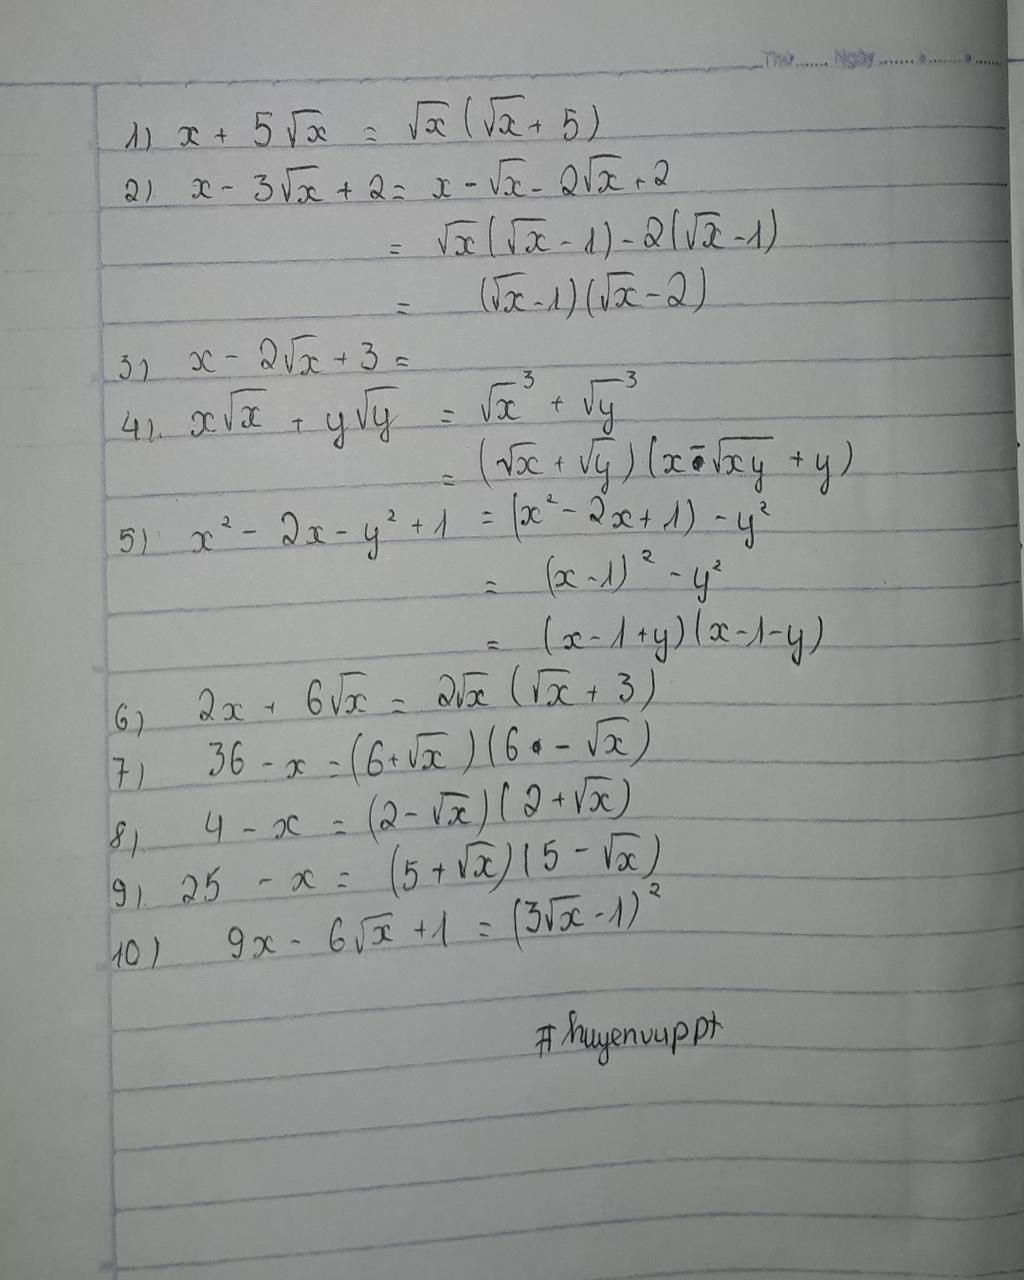 Thứ...... Ngày.................
1) x + 5√x = √x(√x + 5)
2). x - 3√x + 2 = x - √x - 2√x + 2
= √x(√x - 1) - 2(√x - 1)
= (√x - 1)(√x - 2)
3) x - 2√x + 3 =
4). x√x + y√y = √x³ + √y³
= (√x + √y)(x - √xy + y)
5) x² - 2x - y² + 1 = (x² - 2x + 1) - y²
= (x - 1)² - y²
= (x - 1 + y)(x - 1 - y)
6) 2x + 6√x = 2√x (√x + 3)
7) 36 - x = (6 + √x)(6 - √x)
8) 4 - x = (2 - √x)(2 + √x)
9) 25 - x = (5 + √x)(5 - √x)
10) 9x - 6√x + 1 = (3√x - 1)²
#huyenvuppt